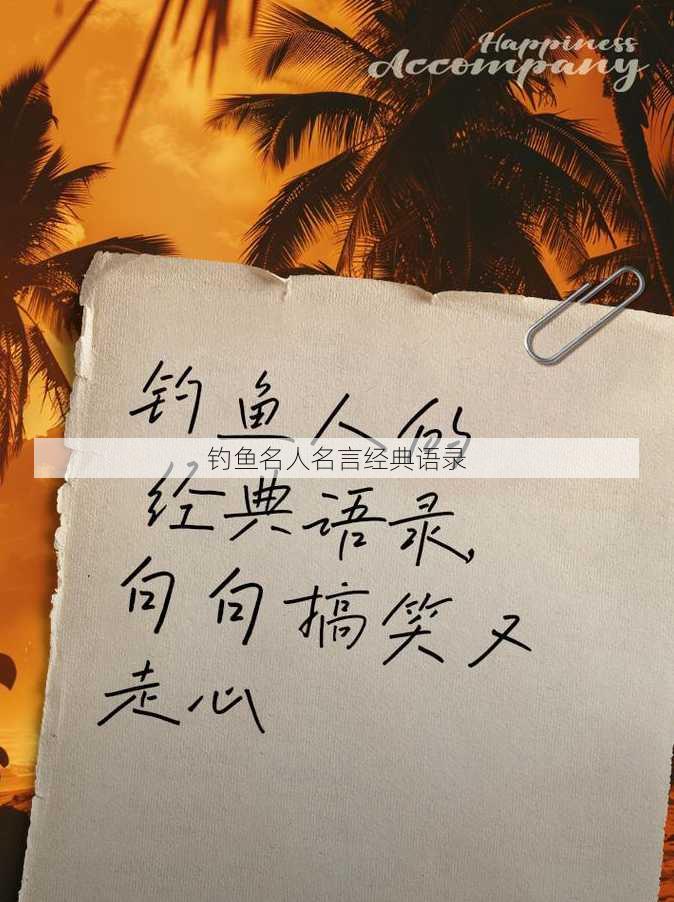 Happiness
Accompany
钓鱼人的
钓鱼名人名言经典语录
经典语录,
句句搞笑又
走心